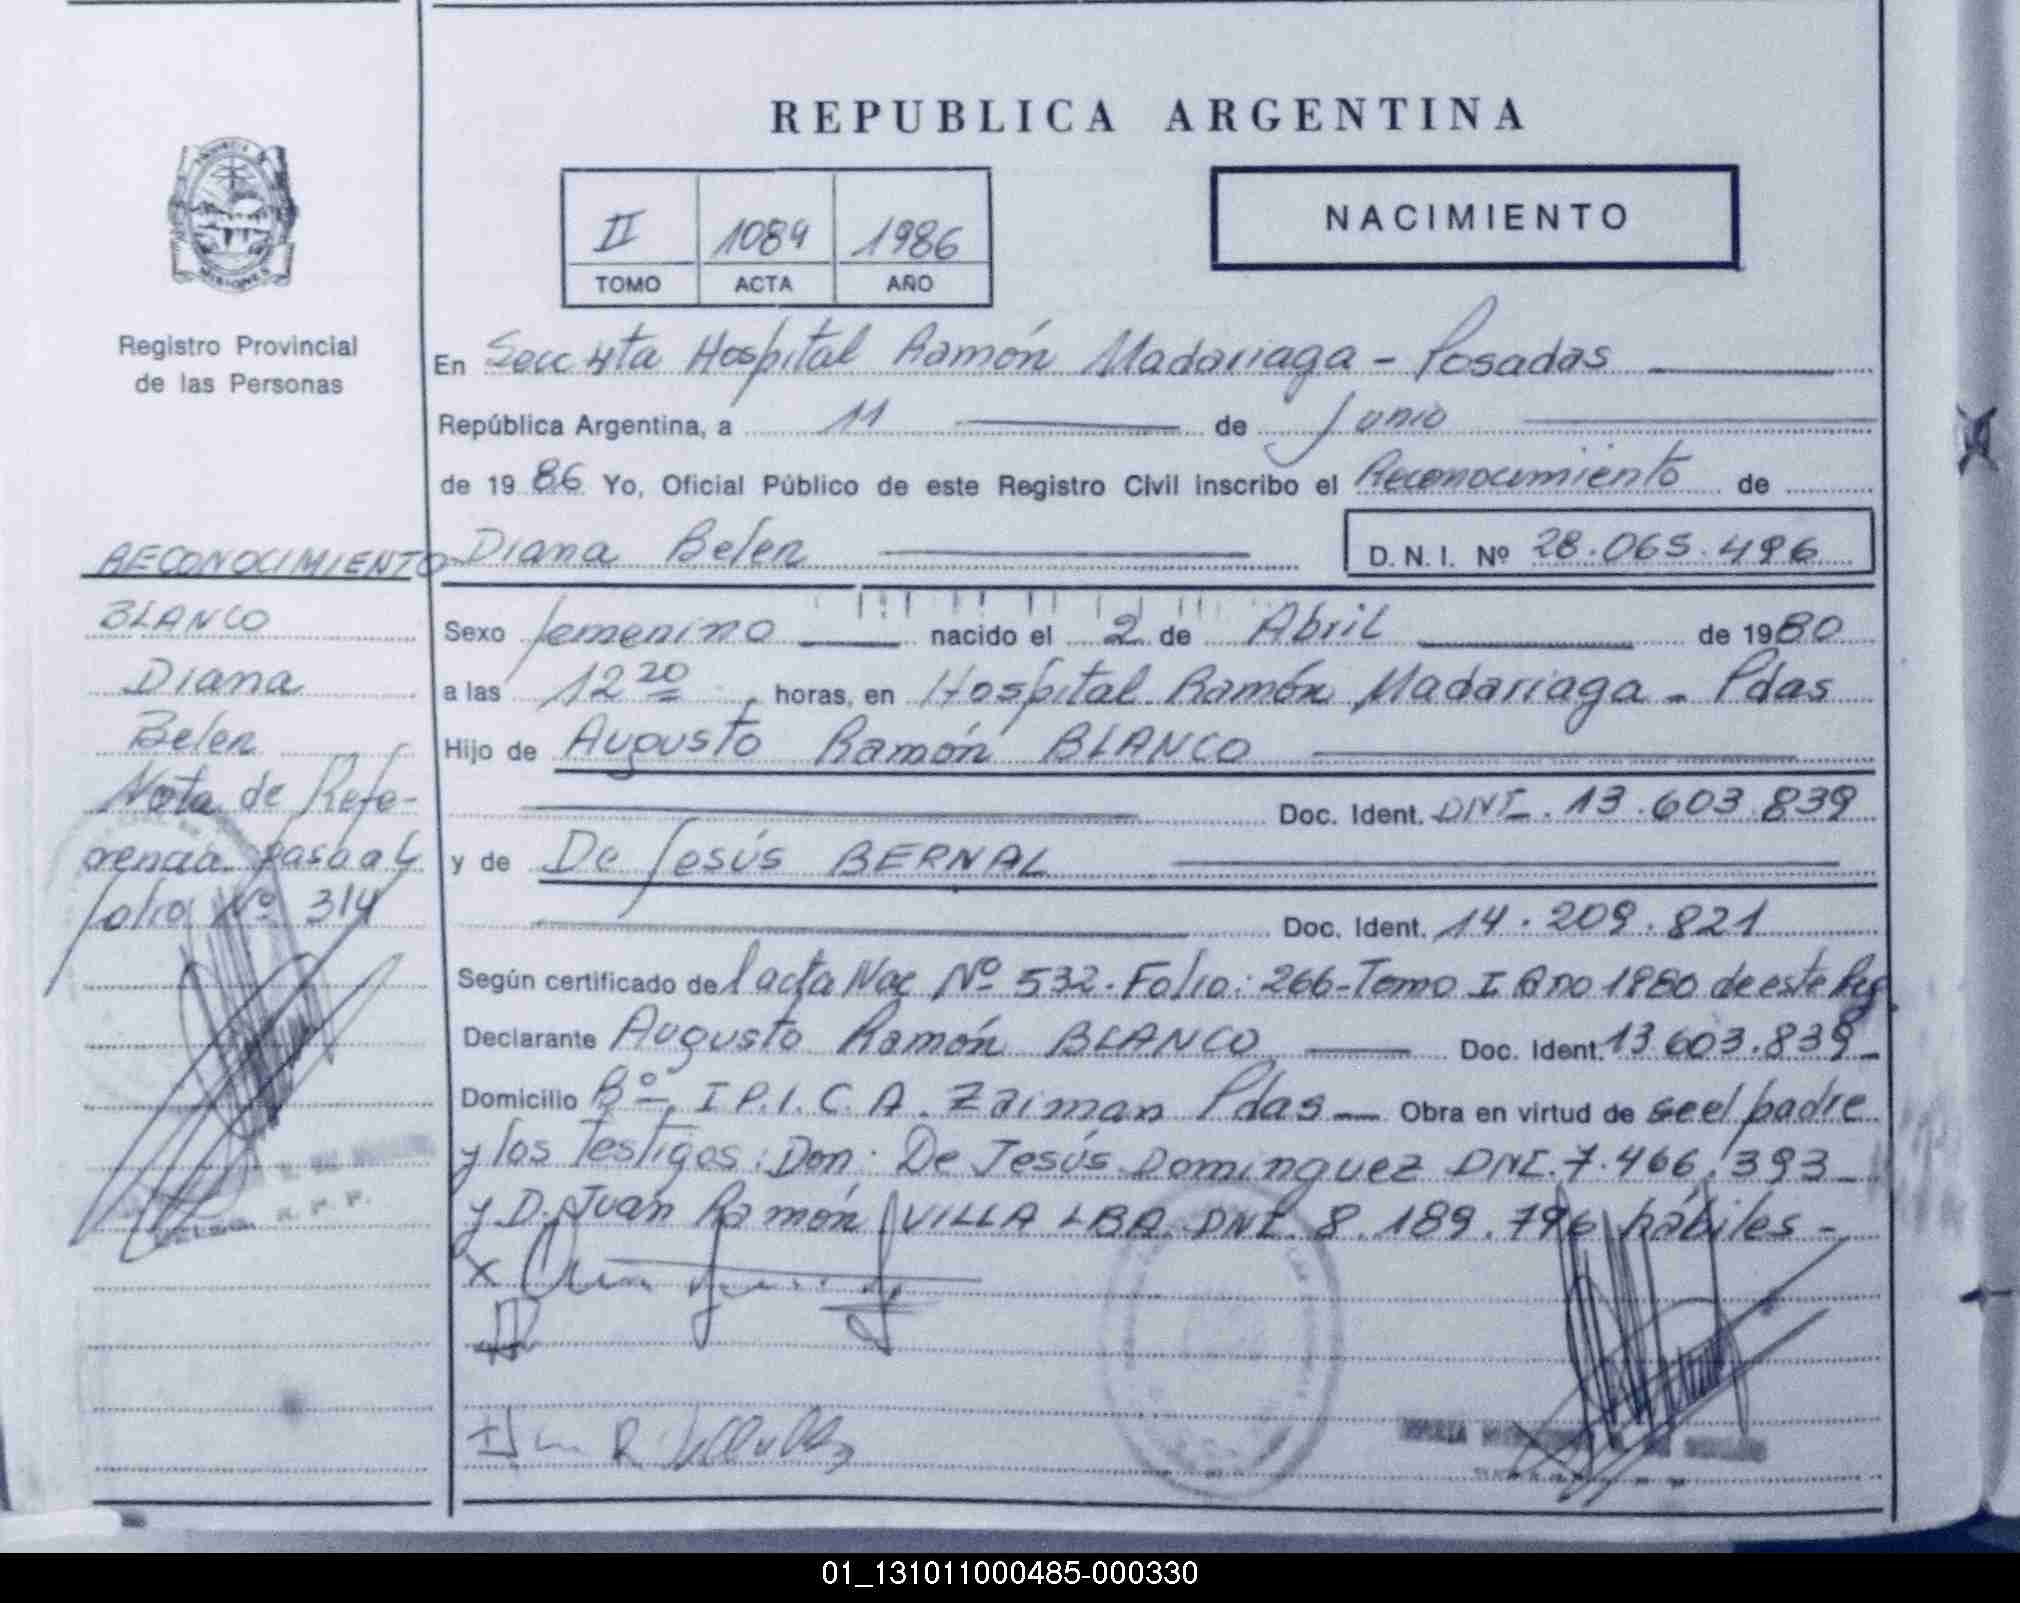 REPUBLICA ARGENTINA
II 1084 1986
TOMO ACTA AÑO
NACIMIENTO
Registro Provincial
de las Personas
En Secc 4ta Hospital Ramón Madariaga - Posadas
República Argentina, a 11 de Junio
de 1986 Yo, Oficial Público de este Registro Civil inscribo el Reconocimiento de
Diana Belen D. N. I. Nº 28.065.496
RECONOCIMIENTO
BLANCO
Diana
Belen
Nota de Refe-
rencia pasa al
folio Nº 314
Sexo femenino nacido el 2 de Abril de 1980
a las 12 20 horas, en Hospital Ramón Madariaga - Pdas
Hijo de Augusto Ramón BLANCO
Doc. Ident. DNI. 13.603.839
y de De Jesús BERNAL
Doc. Ident. 14.209.821
Según certificado del acta Nac Nº 532-Folio: 266-Tomo I Año 1980 de este Reg
Declarante Augusto Ramón BLANCO Doc. Ident. 13.603.839
Domicilio Bº I.P.I.C.A. Zaiman Pdas Obra en virtud de se el padre
y los Testigos: Don: De Jesús Dominguez DNI. 7.466.393
y D. Juan Ramón VILLALBA DNI. 8.189.796 hábiles -
01_131011000485-000330